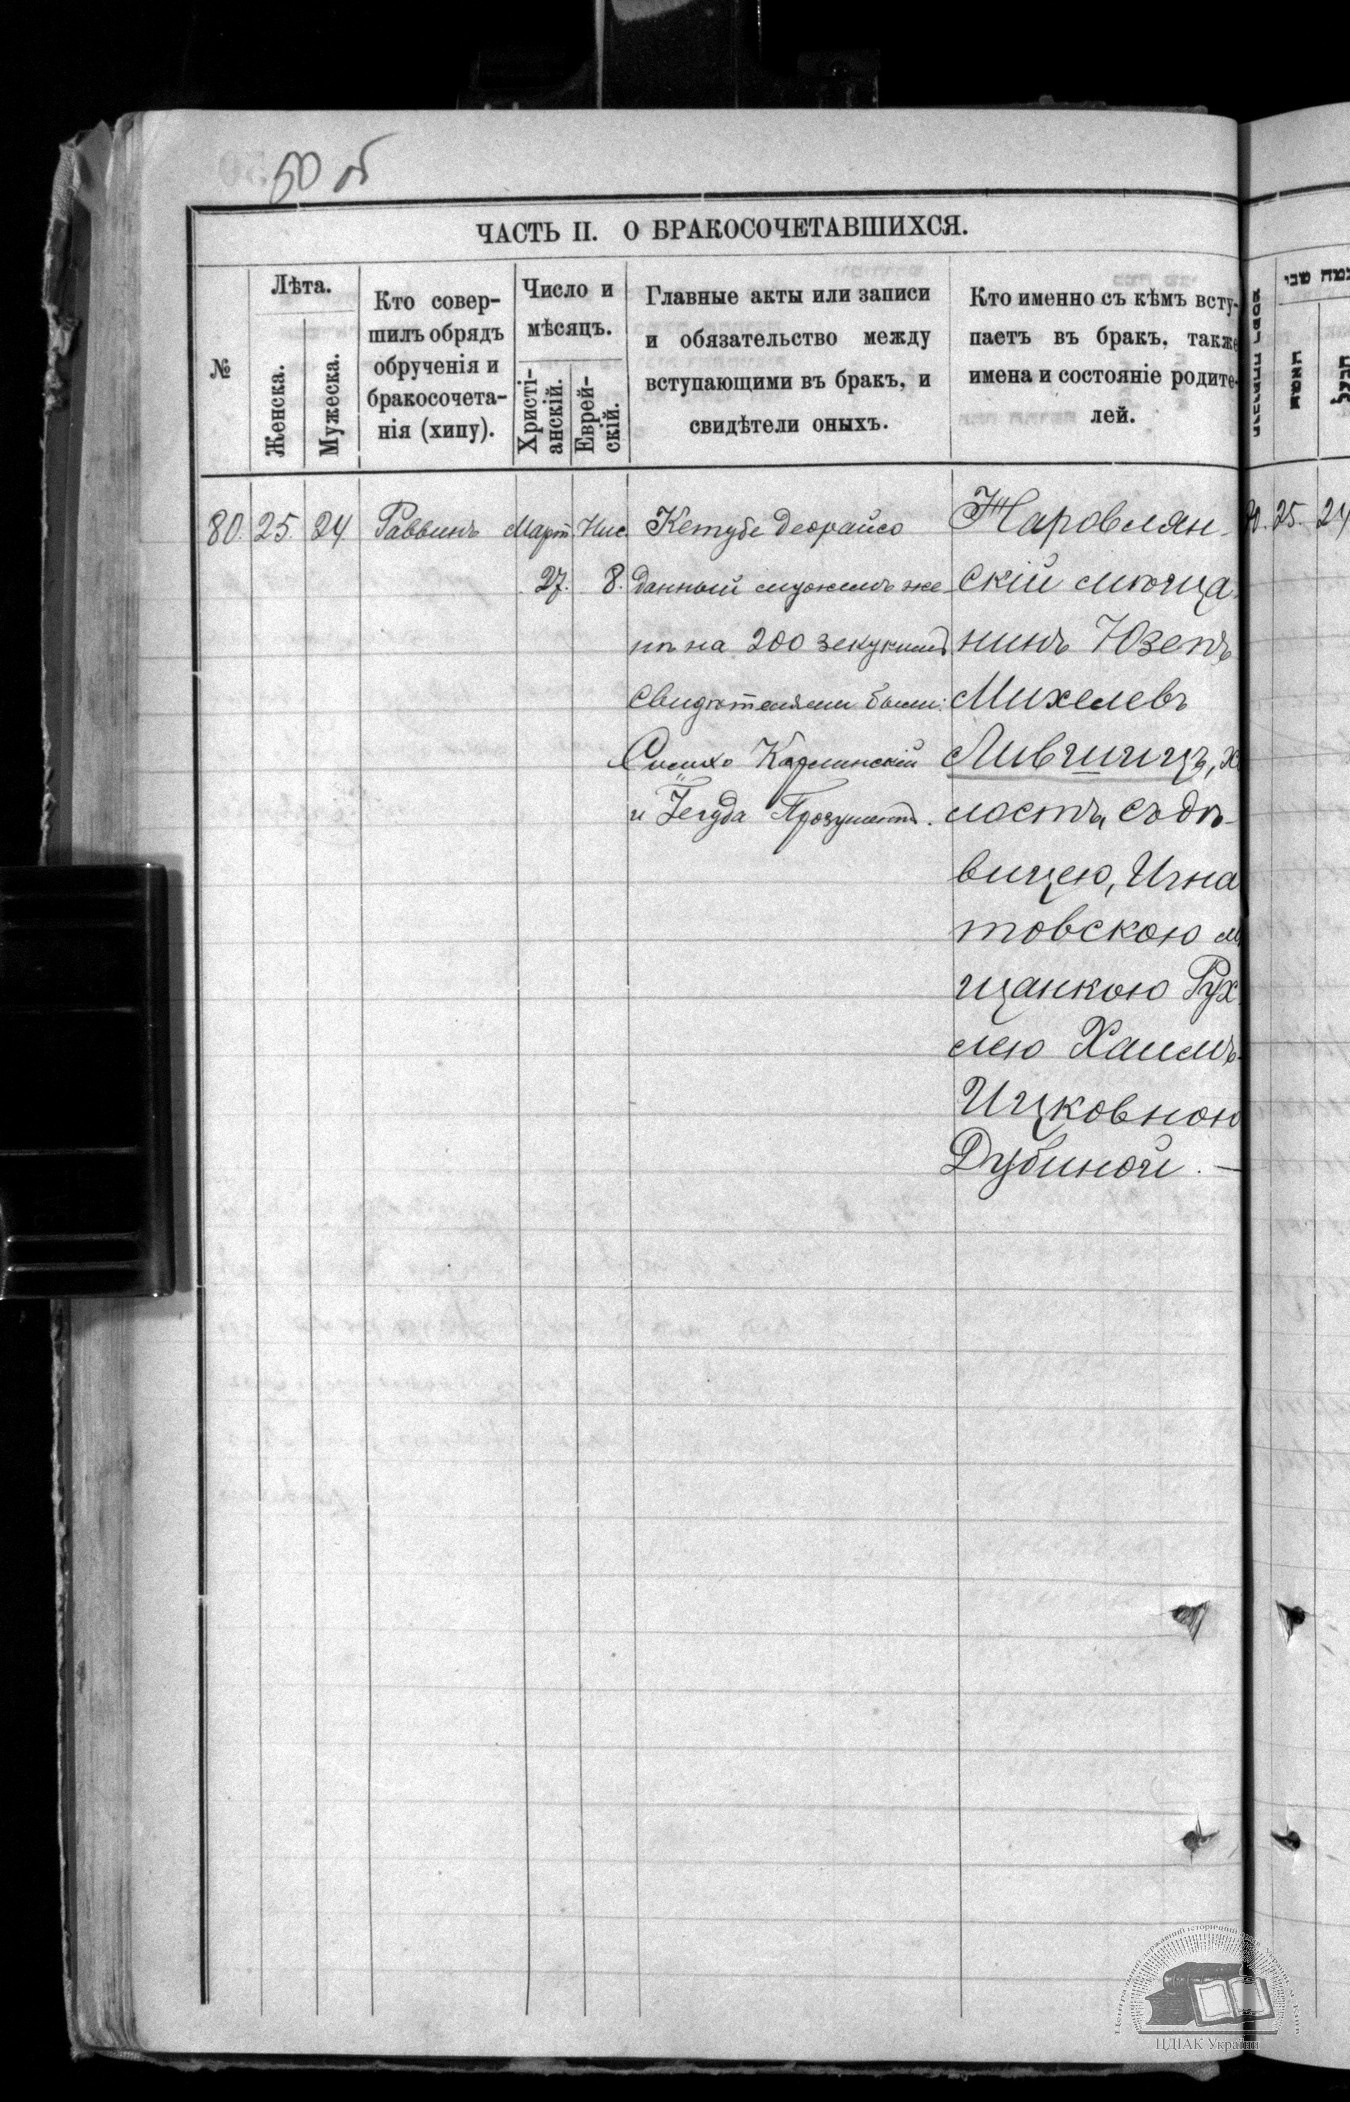 50 об
ЧАСТЬ II. О БРАКОСОЧЕТАВШИХСЯ.
№
Лѣта.
Женска.
Мужеска.
Кто совер-
шилъ обрядъ
обрученія и
бракосочета-
нія (хипу).
Число и
мѣсяцъ.
Христі-
анскій.
Еврей-
скій.
Главные акты или записи
и обязательство между
вступающими въ бракъ, и
свидѣтели оныхъ.
Кто именно съ кѣмъ всту-
паетъ въ бракъ, также
имена и состояніе родите-
лей.
80. 25. 24 Раввинъ Март. Нис.
27. 8.
Кетубе деорайсо
данный мужемъ же-
нѣ на 200 зекукимъ
свидѣтелями были:
Симхо Карлинскій
и Іегуда Прозументъ.
Наровлян-
скій мѣща-
нинъ Юзепъ
Михелевъ
Лившицъ, хо
лостъ, съ дѣ-
вицею, Игна
товскою мѣ
щанкою Рух
лею Хаимъ-
Ицковною
Дубиной. —
80. 25. 24
ЦДІАК України